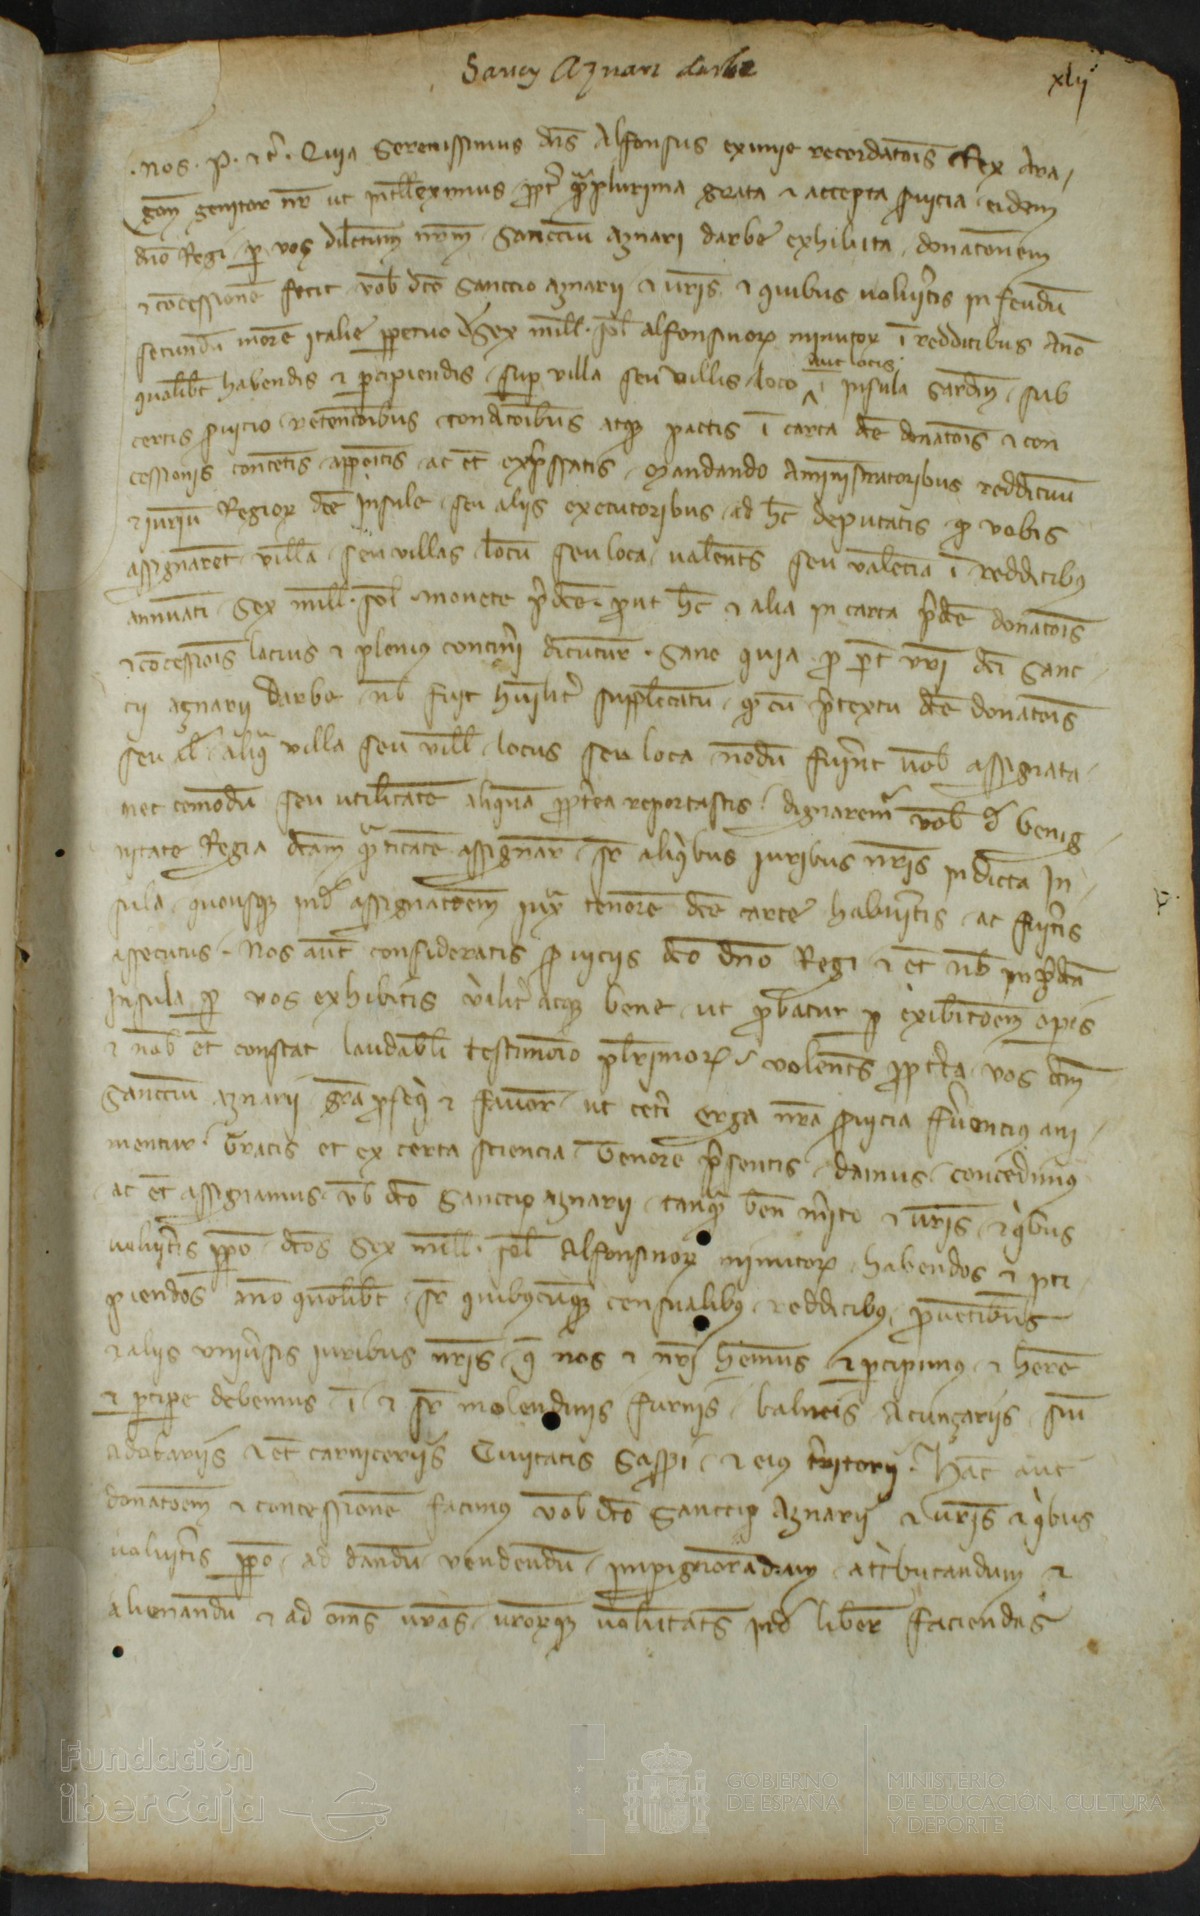 Sancii Aznari darbe
xlij
Nos. P. etc. Quia Serenissimus dns Alfonsus eximie recordatois Rex Ara
gom genitor nr ut intelleximus propt qm plurima grata et accepta servicia eidem
dno Regi per vos dilectum nrm Sanccium Aznari darbe exhibita donatonem
et concessione fecit vob dco Sanccio Aznarii et vris et quibus voluitis in feudu
secundu more italie perpetuo de Sex mill. sol alfonsinor minutor i redditibus Ano
aut locis
quolibt habendis et percipiendis super villa seu villis loco i insula Sardin sub
certis servicio retentoibus condicoibus atqz pactis i carta dce donatois et con
cessionis contetis appoitis ac et expressatis Mandando Aministratoribus reddituu
et iuriu Regior dce insule seu aliis executoribus ad hc deputatis qd vobis
assignaret villa seu villas locu seu loca valents seu valecia i redditibus
annuati Sex mill. sol monete pdce. put hc et alia in carta pdce donatois
et concessiois lacius et plenius contineri dicutur. Sane quia pro pt vri dci Sanc
cii Aznarii darbe nob fuit humilit supplicatu qd cu ptextu dce donatois
seu al aliq villa seu vill locus seu loca nodu fuint vob assignata
nec comodu seu utilitate aliqua propterea reportastis dignarem vob de benig
nitate Regia dcam quatitate assignar sr aliqibus iuribus nris in dicta In
sula quousqz ind assignatoem iux tenore dce carte habuitis ac fuitis
assecutus. Nos aut consideratis serviciis dco dno Regi et et nob in pdca
Insula per vos exhibitis utilit atqz bene ut probatur per exibitoem operis
et nob et constat laudabili testimoio plrimor volents proptea vos dcm
Sanccium Aznarii gra prosequi et favor ut ceti erga nra servicia ferventius ani
mentur. Gratis et ex certa sciencia Tenore psentis damus concedimus
ac et assignamus vob dco Sanccio Aznarii tanqm ben mito et vris et qibus
voluitis ppo dcos Sex mill. sol Alfonsinor minutor habendos et pci
piendos ano quolibt sr quibuscuqz censualibus redditibus provetibus
et aliis universis iuribus nris q nos et nri hemus et pcipimus et here
et pcipe debemus i et sr molendinis furnis balneis Acunçariis sive
adobariis et et carniceriis Civitatis Sasseri et eius tritorii. Hac aut
donatoem et concessione facimus vob dco Sanccio Aznarii et vris et qibus
voluitis ppo ad dandu vendendu impignorandum attributandum et
alienandu et ad oms vras vrorqz voluntats ind liber faciendas
Fundación
iberCaja
GOBIERNO
DE ESPAÑA
MINISTERIO
DE EDUCACIÓN, CULTURA
Y DEPORTE